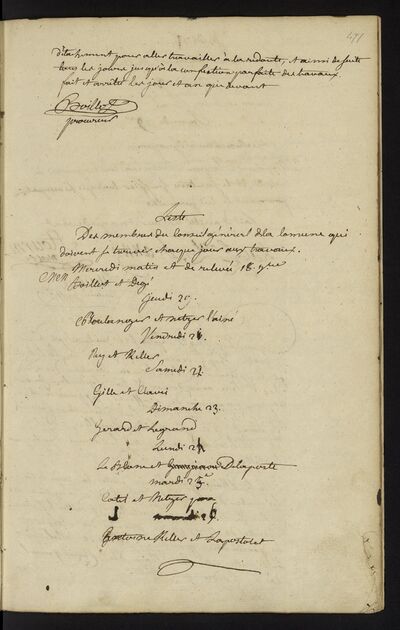 471
détachement pour aller travailler à la redoute, et ainsi de suite
tous les jours jusqu'à la confection parfaite des travaux.
fait et arrêté les jour et an que devant
Boillot
procureur
Liste
Des membres du Conseil général de la Comune qui
doivent se trouver chaque jour aux travaux.
Mercredi matin et de relevée 18.
Boillot et
Jeudi
Boulanger et Metzger l'ainé
Vendredi
Rey et Keller
Samedi
Gille et
Dimanche 23.
Gerard et Legrand
Lundi
Le Blanc et Delaporte
mardi
et Metzger
Antoine Keller et Lapostolet